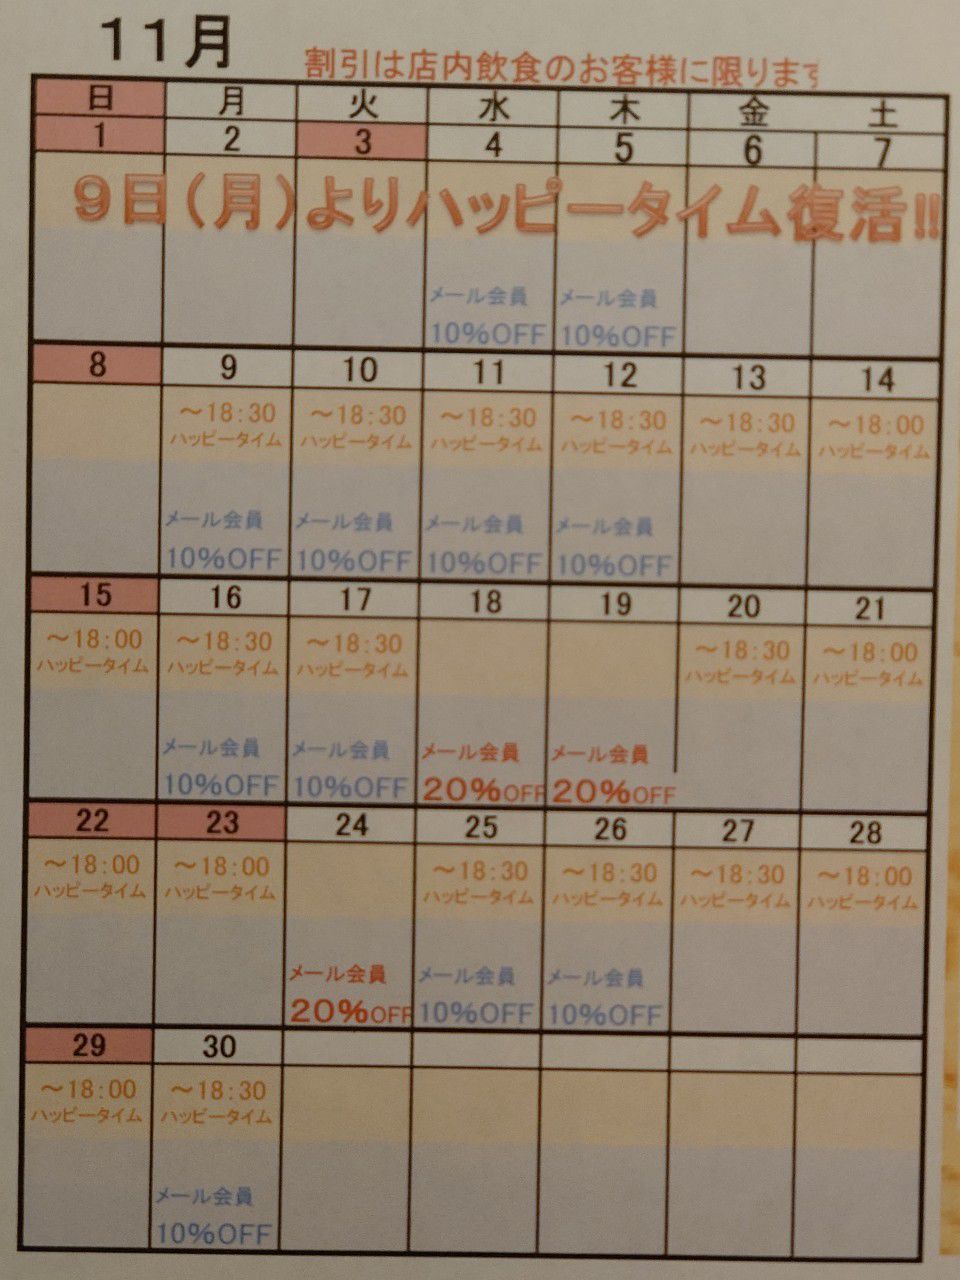 11月
割引は店内飲食のお客様に限ります
日 月 火 水 木 金 土
1 2 3 4 5 6 7
9日(月)よりハッピータイム復活!!
メール会員 メール会員
10%OFF 10%OFF
8 9 10 11 12 13 14
～18:30 ～18:30 ～18:30 ～18:30 ～18:30 ～18:00
ハッピータイム ハッピータイム ハッピータイム ハッピータイム ハッピータイム ハッピータイム
メール会員 メール会員 メール会員 メール会員
10%OFF 10%OFF 10%OFF 10%OFF
15 16 17 18 19 20 21
～18:00 ～18:30 ～18:30 ～18:30 ～18:00
ハッピータイム ハッピータイム ハッピータイム ハッピータイム ハッピータイム
メール会員 メール会員 メール会員 メール会員
10%OFF 10%OFF 20%OFF 20%OFF
22 23 24 25 26 27 28
～18:00 ～18:00 ～18:30 ～18:30 ～18:30 ～18:00
ハッピータイム ハッピータイム ハッピータイム ハッピータイム ハッピータイム ハッピータイム
メール会員 メール会員 メール会員
20%OFF 10%OFF 10%OFF
29 30
～18:00 ～18:30
ハッピータイム ハッピータイム
メール会員
10%OFF